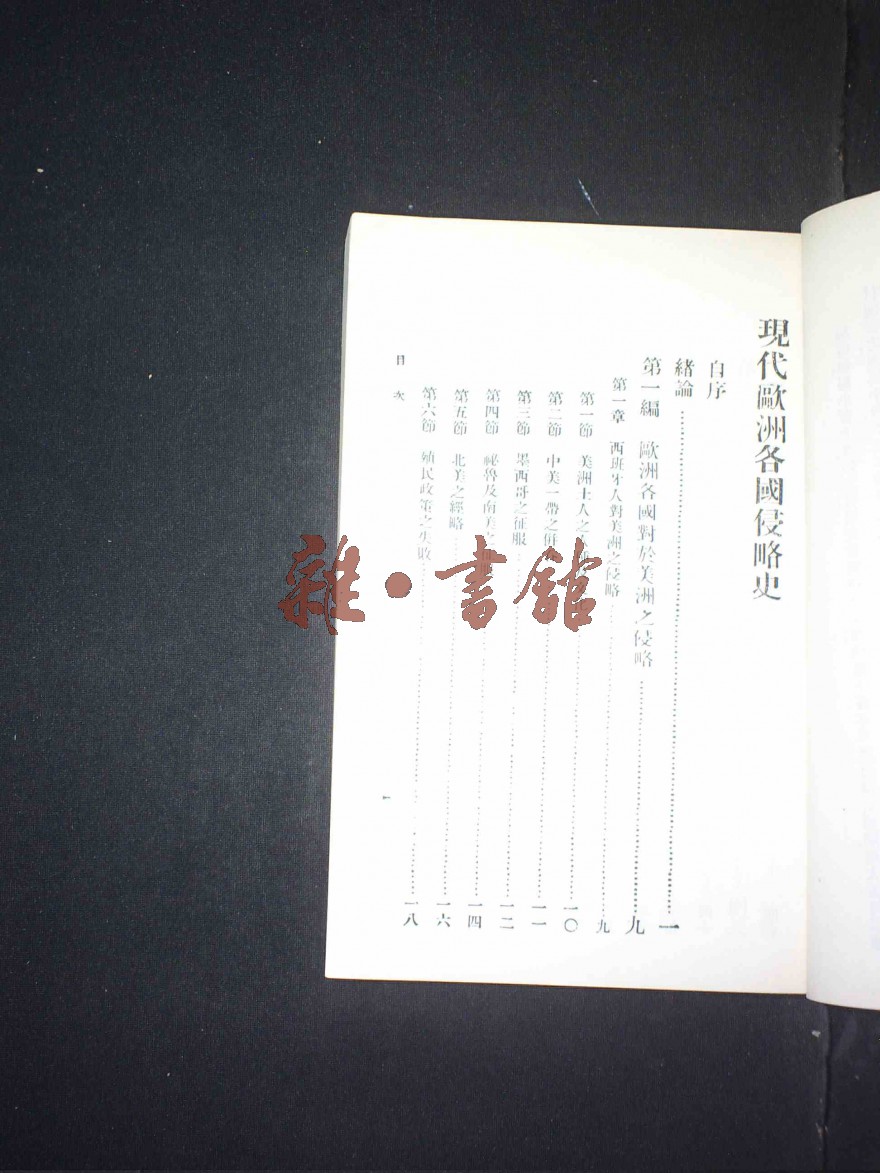 現代歐洲各國侵略史
自序
緒論 一
第一編 歐洲各國對於美洲之侵略 九
第一章 西班牙人對美洲之侵略 九
第一節 美洲土人之 一〇
第二節 中美一帶之併 一一
第三節 墨西哥之征服 一二
第四節 祕魯及南美之 一四
第五節 北美之經略 一六
第六節 殖民政策之失敗 一八
目次
一
雜·書館